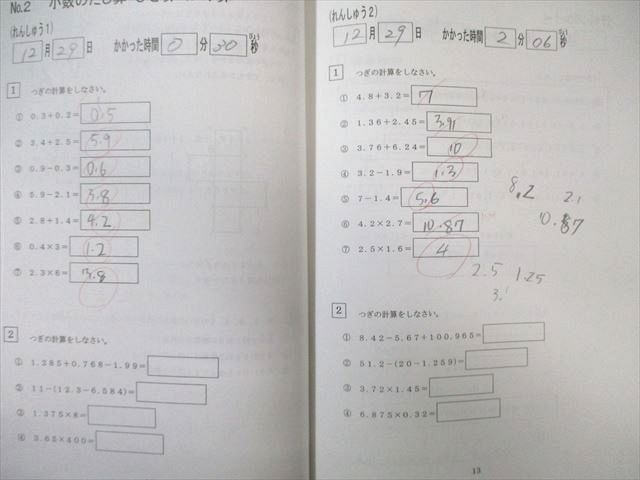 No.2 小数の
(れんしゅう1)
12月29日 かかった時間 0分30秒
1 つぎの計算をしなさい。
① 0.3+0.2= 0.5
② 3.4+2.5= 5.9
③ 0.9-0.3= 0.6
④ 5.9-2.1= 3.8
⑤ 2.8+1.4= 4.2
⑥ 0.4×3= 1.2
⑦ 2.3×6= 3.8
2 つぎの計算をしなさい。
① 1.285+0.768-1.99=
② 11-(12.3-6.584)=
③ 1.375×8=
④ 3.65×400=
(れんしゅう2)
12月29日 かかった時間 2分06秒
1 つぎの計算をしなさい。
① 4.8+3.2= 7
② 1.36+2.45= 3.91
③ 3.76+6.24= 10
④ 3.2-1.9= 1.3
⑤ 7-1.4= 5.6
⑥ 4.2×2.7= 10.87
⑦ 2.5×1.6= 4
8.2
2.1
10.87
2.5 1.25
2 つぎの計算をしなさい。
① 8.42-5.67+100.965=
② 51.2-(20-1.259)=
③ 3.72×1.45=
④ 6.875×0.32=
13